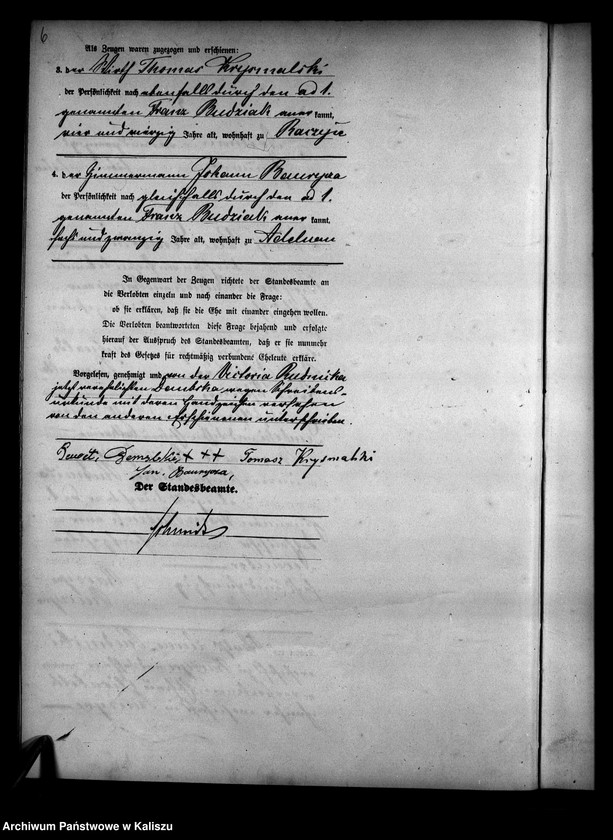 6
Als Zeugen waren zugezogen und erschienen:
3. der Wirth Thomas Krysmalski
der Persönlichkeit nach ebenfalls durch den ad 1.
genannten Franz Budziak aner kannt,
vier und vierzig Jahre alt, wohnhaft zu Raczyce
4. der Zimmermann Johann
der Persönlichkeit nach gleichfalls durch den ad 1.
genannten Franz Budziak aner kannt,
sechs und zwanzig Jahre alt, wohnhaft zu Adelnau
In Gegenwart der Zeugen richtete der Standesbeamte an
die Verlobten einzeln und nach einander die Frage:
ob sie erklären, daß sie die Ehe mit einander eingehen wollen.
Die Verlobten beantworteten diese Frage bejahend und erfolgte
hierauf der Ausspruch des Standesbeamten, daß er sie nunmehr
kraft des Gesetzes für rechtmäßig verbundene Eheleute erkläre.
Vorgelesen, genehmigt und von der Victoria Rudnicka
jetzt verehelichten Dembska wegen Schreibens-
unkunde mit deren Handzeichen versehen
von den anderen Erschienenen unterschrieben.
+++ Tomasz Krysmalski
Jan
Der Standesbeamte.
Schmidt
Archiwum Państwowe w Kaliszu